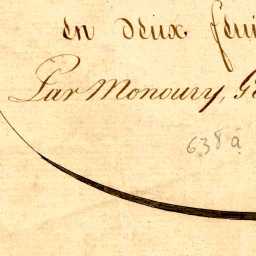 en deux feui
Par Monoury, Gé
638 a